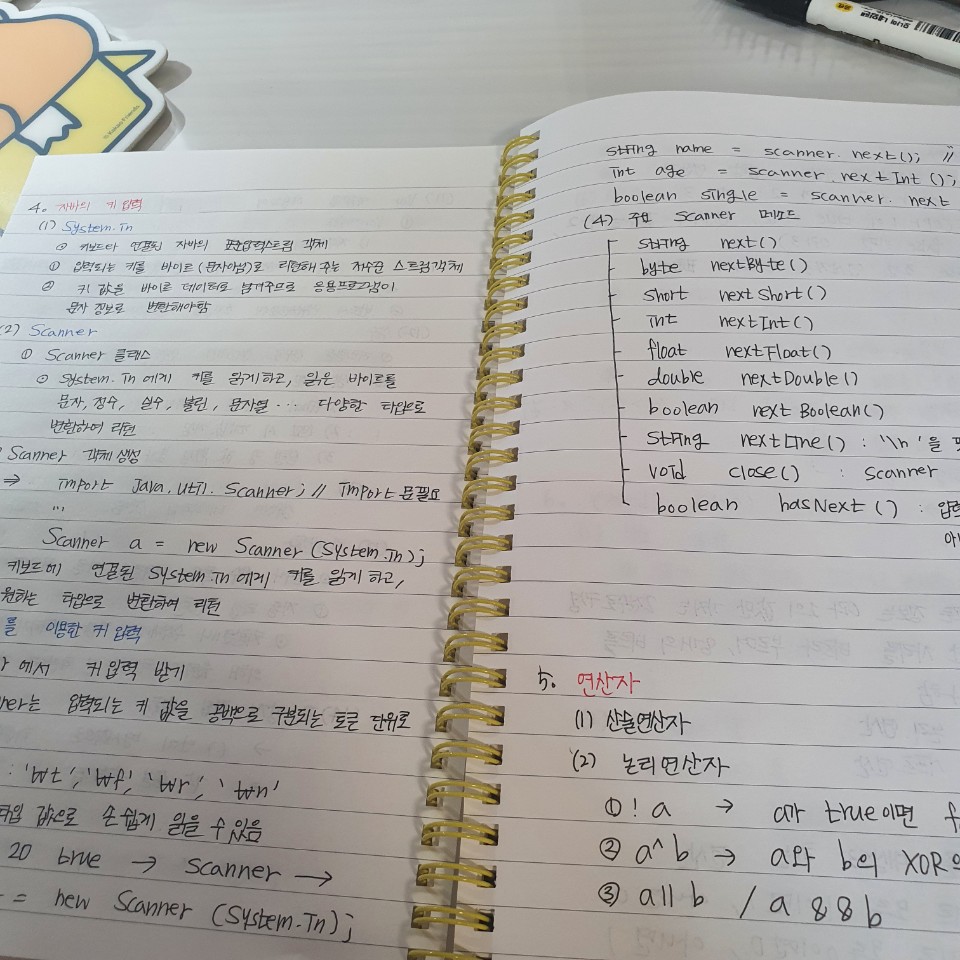 4. 자바의 키 입력
(1) System.in
⊙ 키보드와 연결된 자바의 표준입력스트림 객체
① 입력되는 키를 바이트(문자아님)로 리턴해 주는 저수준 스트림객체
② 키 값을 바이트 데이터로 넘겨주므로 응용프로그램이
문자 정보로 변환해야함
(2) Scanner
① Scanner 클래스
⊙ System.in 에게 키를 읽게하고, 읽은 바이트를
문자, 정수, 실수, 불린, 문자열 ... 다양한 타입으로
변환하여 리턴
Scanner 객체 생성
⇒ import java.util.Scanner; // import 문필요
...
Scanner a = new Scanner (System.in);
키보드에 연결된 System.in 에게 키를 읽게 하고,
원하는 타입으로 변환하여 리턴
를 이용한 키 입력
에서 키 입력 받기
ner는 입력되는 키 값을 공백으로 구분되는 토큰 단위로
: '₩t', '₩f', '₩r', '₩n'
타입 값으로 손쉽게 읽을 수 있음
20 true → Scanner →
= new Scanner (System.in);
String name = scanner.next(); //
int age = scanner.nextInt();
boolean single = scanner.next
(4) 주요 Scanner 메소드
String next()
byte nextByte()
short nextShort()
int nextInt()
float nextFloat()
double nextDouble()
boolean nextBoolean()
String nextLine() : '\n'을
void close() : Scanner
boolean hasNext() : 입력
5. 연산자
(1) 산술연산자
(2) 논리연산자
① ! a → a가 true이면 f
② a^b → a와 b의 XOR
③ a||b / a&&b